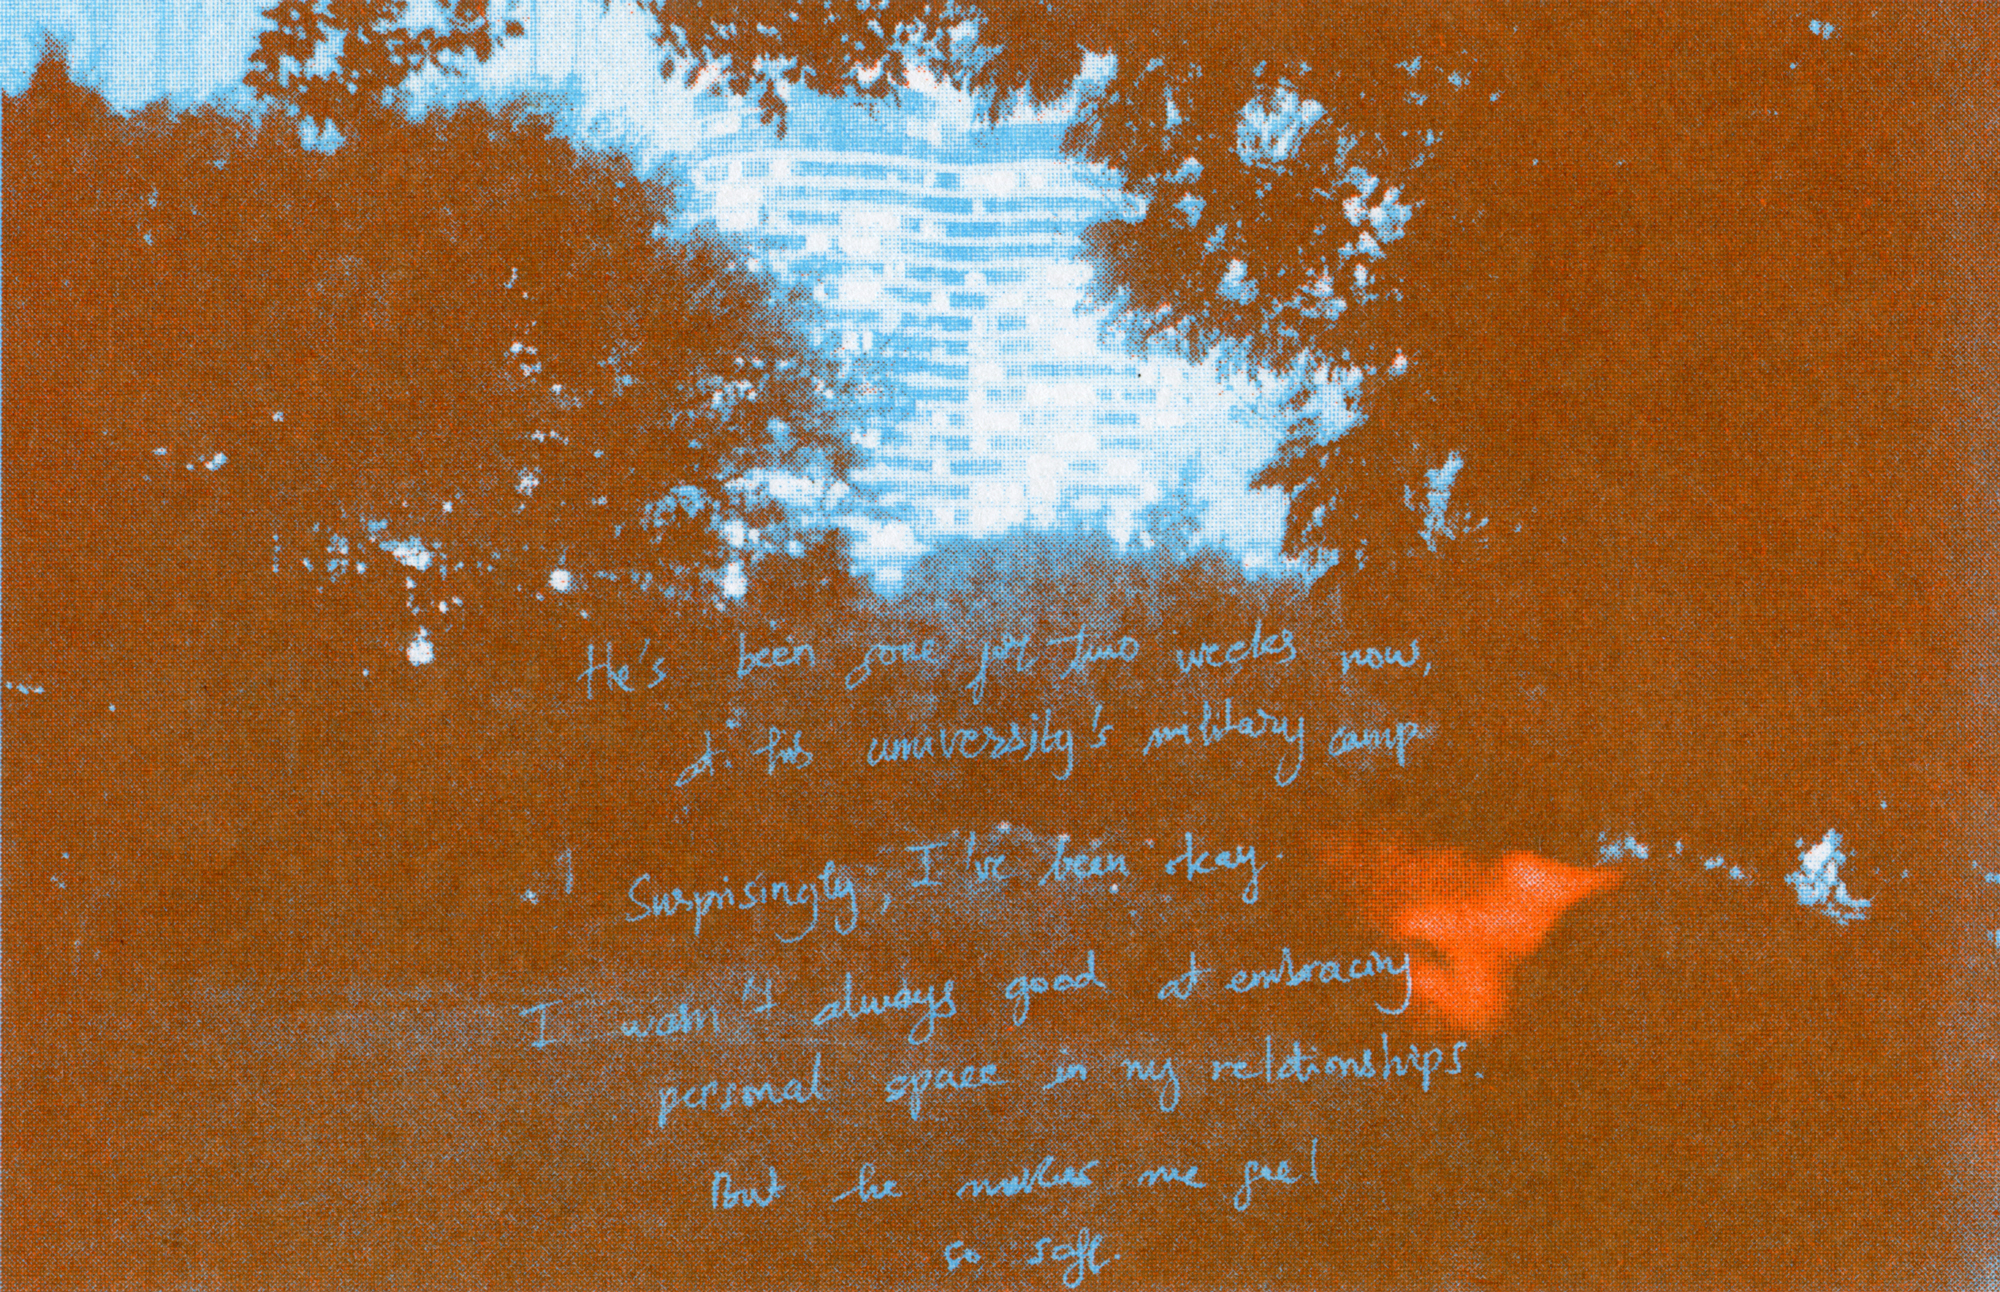 He's been gone for two weeks now,
at his university's military camp.
Surprisingly, I've been okay.
I wasn't always good at embracing
personal space in my relationships.
But he makes me feel
so safe.